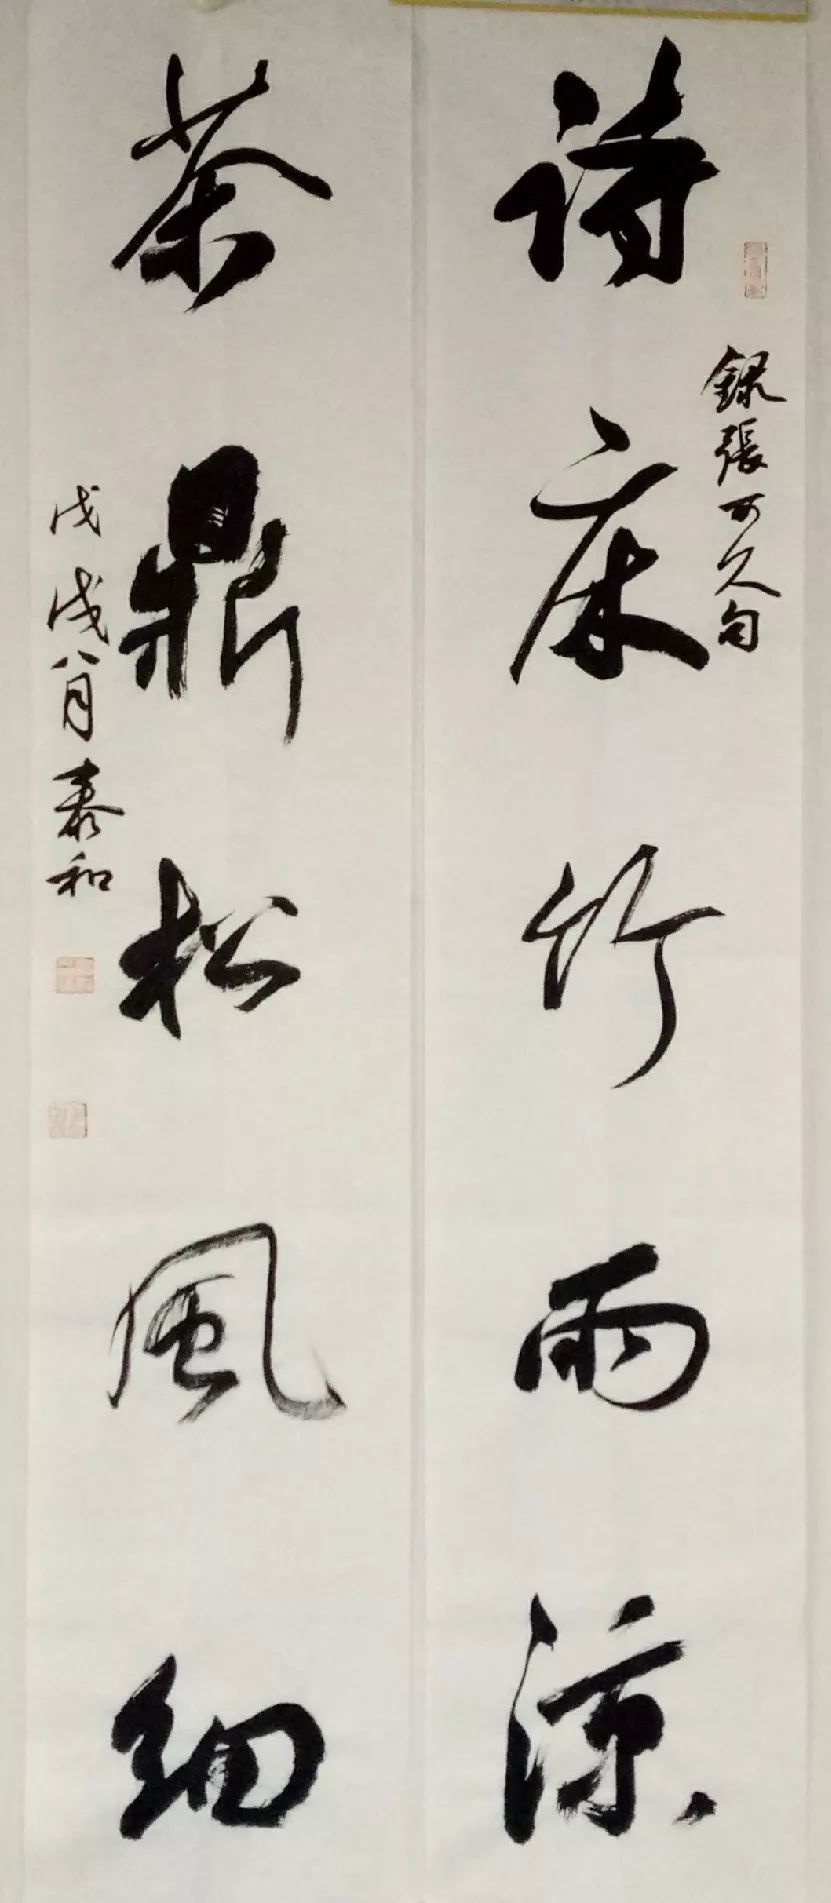 詩床竹雨涼
錄張可久句
茶鼎松風細
戊戌八月泰和